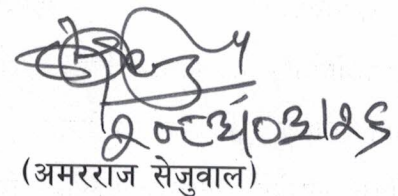 २०८३।०३।२६
(अमरराज सेजुवाल)